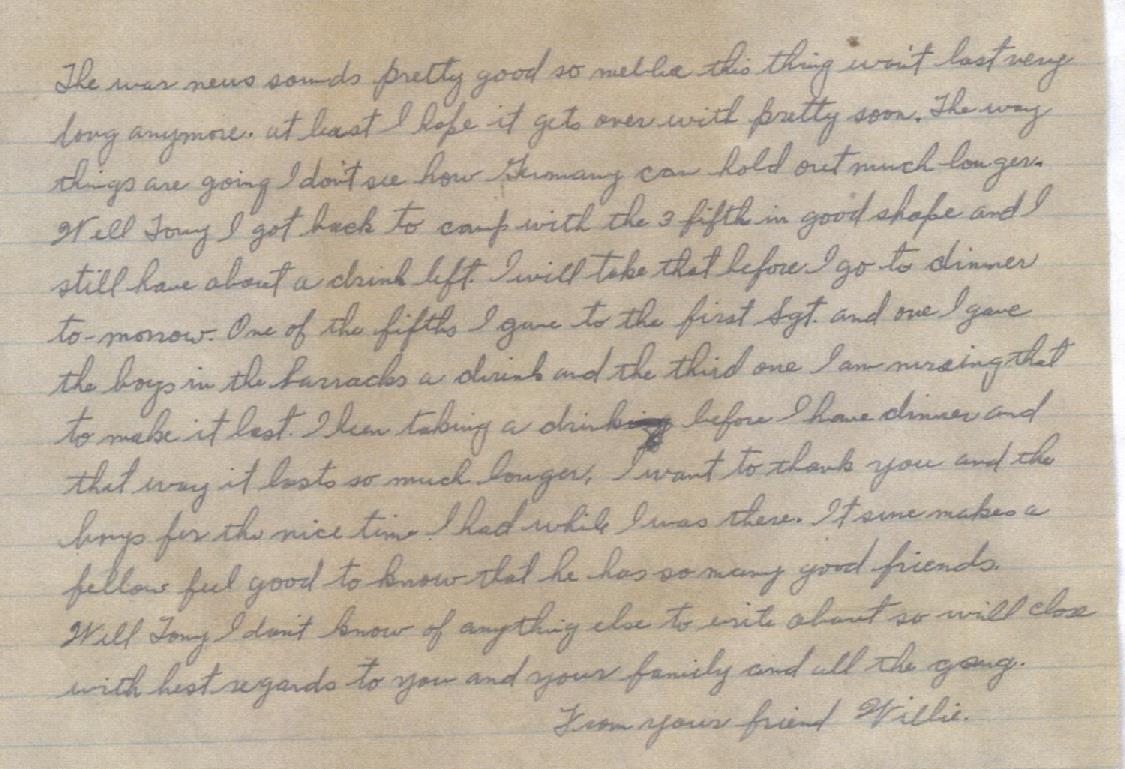 The war news sounds pretty good so mebbe this thing won't last very
long anymore. at least I hope it gets over with pretty soon. The way
things are going I don't see how Germany can hold out much longer.
Well Tony I got back to camp with the 3 fifth in good shape and I
still have about a drink left. I will take that before I go to dinner
to-morrow. One of the fifths I gave to the first Sgt. and one I gave
the boys in the barracks a drink and the third one I am nursing that
to make it last. I been taking a drink before I have dinner and
that way it lasts so much longer. I want to thank you and the
boys for the nice time I had while I was there. It sure makes a
fellow feel good to know that he has so many good friends.
Well Tony I don't know of anything else to write about so will close
with best regards to you and your family and all the gang.
From your friend Willie.